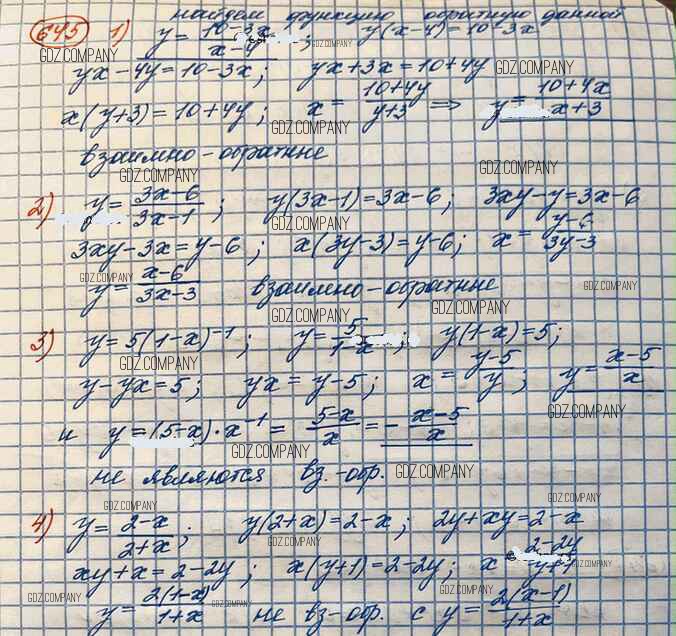 найдем функцию обратную данной
645 1) y = 10-3x / x-4 ; y(x-4) = 10-3x
yx - 4y = 10 - 3x ; yx + 3x = 10 + 4y
x(y+3) = 10 + 4y ; x = 10+4y / y+3 ⇒ y = 10+4x / x+3
взаимно-обратные
2) y = 3x-6 / 3x-1 ; y(3x-1) = 3x-6 ; 3xy - y = 3x - 6
3xy - 3x = y - 6 ; x(3y-3) = y-6 ; x = y-6 / 3y-3
y = x-6 / 3x-3 взаимно-обратные
3) y = 5(1-x)⁻¹ ; y = 5 / 1-x ; y(1-x) = 5 ;
y - yx = 5 ; yx = y - 5 ; x = y-5 / y ; y = x-5 / x
и y = (5-x)·x⁻¹ = 5-x / x = - x-5 / x
не являются вз.-обр.
4) y = 2-x / 2+x ; y(2+x) = 2-x ; 2y + xy = 2 - x
xy + x = 2 - 2y ; x(y+1) = 2-2y ; x = 2-2y / y+1
y = 2(1-x) / 1+x не вз-обр. с y = 2(x-1) / 1+x
GDZ.COMPANY